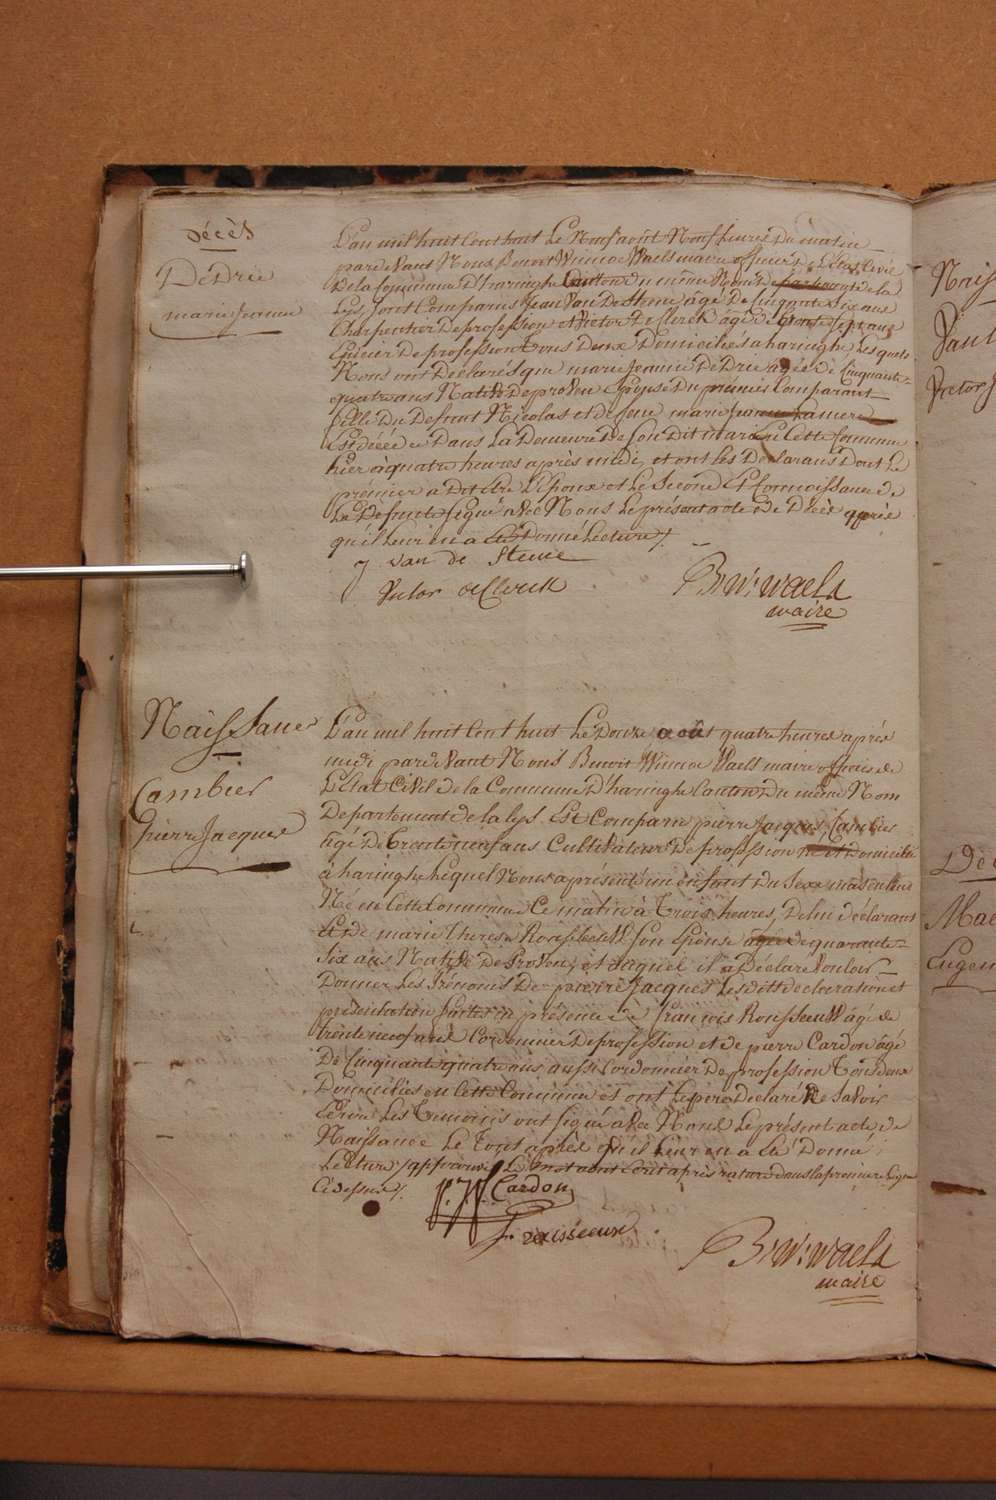 Décès
DéDrie
marie Jeanne
L'an mil huit Cent huit Le Neuf août Neuf heures Du matin
pardevant Nous Benoit Winnoc Waels maire officier De L'état Civil
De la Commune D'haringhe Canton Du même Nom De de la
Lys, sont Comparus Jean Van De Steene âgé De Cinquante Six ans
Charpentier De profession et Victor De Clerck âgé De trente Sept ans
De profession Tous Deux Domiciliés a haringhe, Les quels
Nous ont Déclarés que marie Jeanne De Drie âgée De Cinquante
quatre ans Native De proven Epouse Du premier Comparant
fille Du Defunt Nicolas et de feue marie
est décédée Dans La Demeure De Son Dit mari En Cette Commune
hier à quatre heures après midi, et ont Les Déclarans Dont Le
prémier a Dit être L'Epoux et Le Second De Connoissance de
La Défunte Signé avec Nous Le présent acte De Décès après
qu'il Leur en a été Donné Lecture /.
J van de Steene
Victor deClerck
B: W: Waels
maire
Naissance
Cambier
Pierre Jacques
L'an mil huit Cent huit Le Douze août quatre heures après
midi pardevant Nous Benoit Winnoc Waels maire officier de
L'Etat Civil de la Commune D'haringhe Canton Du même Nom
Departement de la lys Est Comparu pierre Jacques Cambier
âgé De Trente neuf ans Cultivateur De profession Domicilié
à haringhe Lequel Nous a présenté un enfant Du Sexe masculin
Né en Cette Commune Ce matin à Trois heures, De lui Déclarant
et De marie Therese Rousseeuw Son Epouse âgée de quarante
Six ans Native De Proven, et auquel il a Déclaré vouloir
Donner Les Prénoms De pierre Jacques Les dittes déclaration et
présentation faites en présence de francois Rousseeuw âgé de
trente neuf ans Cordonnier De profession et de pierre Cardon âgé
De Cinquante quatre ans aussi Cordonnier De profession Tous deux
Domiciliés en Cette Commune et ont Le pere Declaré Ne Savoir
Ecrire Les Temoins ont Signé avec Nous Le présent acte de
Naissance Le Tout après qu'il Leur en a été Donné
Lecture / approuvé Le mot aout Ecrit après rature dans la premiere Ligne
Cidessus /.
p. J. Cardon
f. rousseeuw
B: W: Waels
maire
Naiss
Paul
Victor
Déc
Mae
Eugen